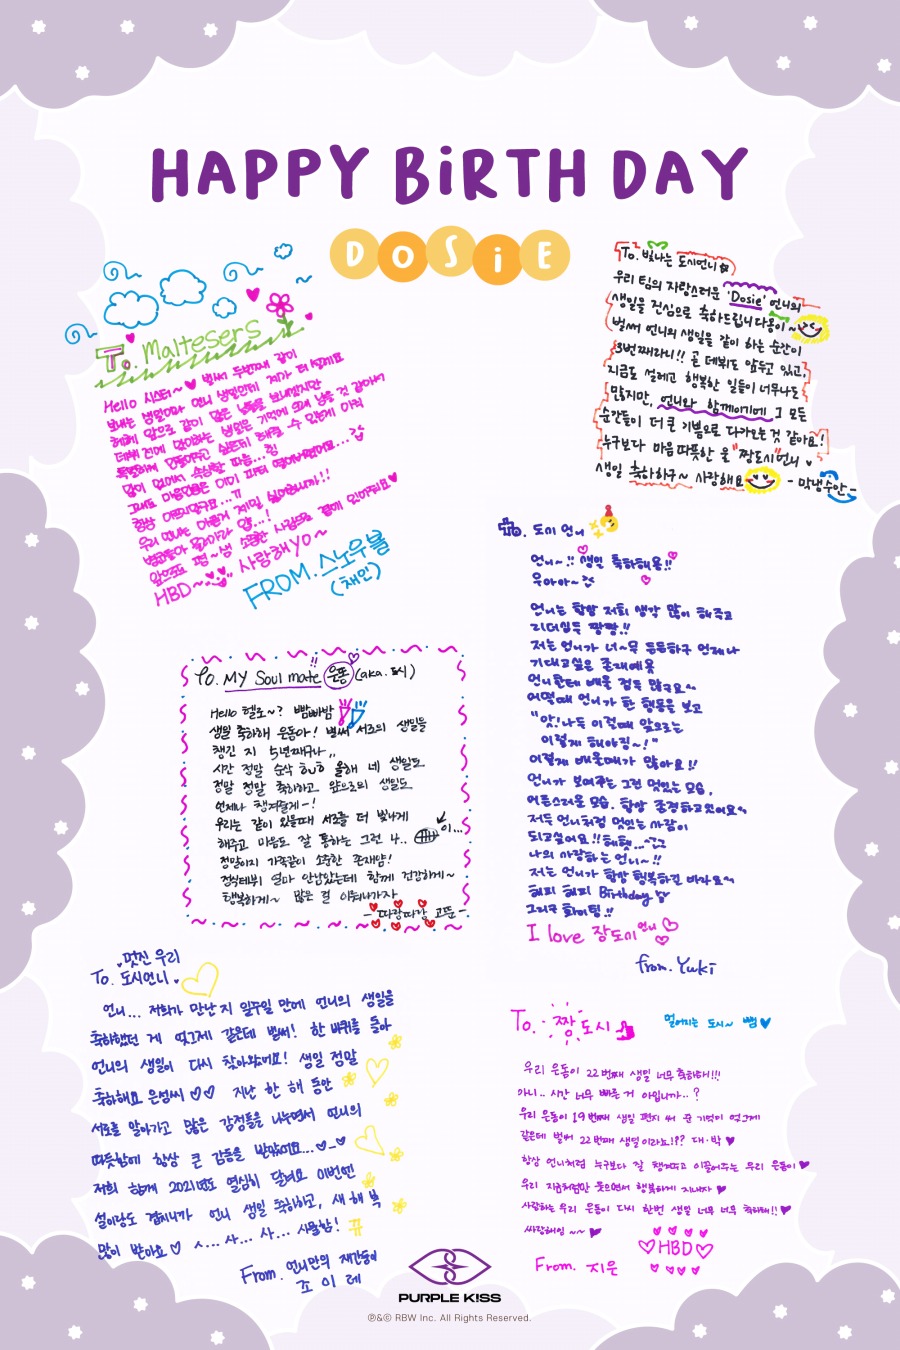 HAPPY BiRTH DAY
DOSiE
To. Maltesers
Hello 시스터~♥ 벌써 두번째 같이
보내는 생일이야 언니 생일인데 제가 더 설레요
헤헤 앞으로 같이 많은 날들을 보내겠지만
데뷔 전에 맞이하는 생일은 기억에 오래 남을 것 같아서
특별하게 만들어주고 싶은데 해줄 수 있는게 이것
밖이 없어서 속상한 마음...힝
그래도 마음만은 이미 파티
항상
우리 언니는 아픈게 제일 싫어하니까!!
앞으로도 평~생 소중한 사람으로 함께 있어줘요♥
HBD~ 사랑해yo~
FROM. 스노우볼
(채인)
To. 빛나는 도시언니
우리 팀의 자랑스러운 'Dosie' 언니의
생일을 진심으로 축하드립니다용이~
벌써 언니의 생일을 같이 하는 순간이
3번째라니!! 곧 데뷔도 앞두고 있고,
지금도 설레고 행복한 일들이 너무나도
많지만, 언니와 함께이기에 그 모든
순간들이 더 큰 기쁨으로 다가오는 것 같아요!
누구보다 마음 따뜻한 울 "짱도시"언니
생일 축하하구~ 사랑해요 - 막냉수안-
To. 도시 언니
언니~!! 생일 축하해용!!
우아아~
언니는 항상 저희 생각 많이 해주고
리더십두 짱짱!!
저는 언니가 너~무 든든하구 언제나
기대고싶은 존재에욧
언니한테 배울 점두 많구요~
어떨때 언니가 한 행동을 보고
"앗!나두 이럴때 앞으로는
이렇게 해야징~!"
이렇게 배울때가 많아요!!
언니가 보여주는 그런 멋있는 모습,
어른스러운 모습. 항상 존경하고있어요~
저두 언니처럼 멋있는 사람이
되고싶어요!!헤헷...
나의 사랑하는 언니~!!
저는 언니가 항상 행복하길 바라요~
해피 해피 Birthday
그리구 화이팅!!
I love 장도시언니
from. Yuki
To. MY Soul mate 은똥 (aka. 도시)
Hello 헬로~? 빰빠바밤
생일 축하해 은동아! 벌써 서로의 생일을
챙긴 지 5년째구나,,
시간 정말 순삭 올해 네 생일도
정말 정말 축하하고 앞으로의 생일도
언제나 챙겨줄게-!
우리는 같이 있을때 서로를 더 빛나게
해주고 마음도 잘 통하는 그런 사.. 이...
정말이지 가족같이 소중한 존재얌!
정식데뷔 얼마 안남았는데 함께 건강하게~
행복하게~ 많은 걸 이뤄나가자
- 따랑따랑 고뚠 -
멋진 우리
To. 도시언니.
언니... 저희가 만난지 일주일 만에 언니의 생일을
축하했던 게 엊그제 같은데 벌써! 한 바퀴를 돌아
언니의 생일이 다시 찾아왔어요! 생일 정말
축하해요 은성씨 ♡♡ 지난 한 해 동안
서로를 알아가고 많은 감정들을 나누면서 언니의
따뜻함에 항상 큰 감동을 받았어요...♥_♥
저희 함께 2021년도 열심히 달려요 이번엔
설이랑도 겹치니까 언니 생일 축하하고, 새해 복
많이 받아요♡ ㅅ... 사... 사... 사물함! ㅠ
From. 언니만의 재간둥이
조 이 레
To. 짱도시
멀어지는 도시~ 뺌♥
우리 은동이 22번째 생일 너무 축하해!!!
아니.. 시간 너무 빠른 거 아입니까..?
우리 은동이 19번째 생일 편지 써 준 기억이 엊그제
같은데 벌써 22번째 생일이라뇨!?? 대.박♥
항상 언니처럼 누구보다 잘 챙겨주고 이끌어주는 우리 은동이♥
우리 지금처럼만 웃으면서 행복하게 지내자♥
사랑하는 우리 은동이 다시 한번 생일 너무 너무 축하해!!♥
싸랑해잉 ~~♥
♡HBD♡
From. 지은
PURPLE K!SS
℗&© RBW Inc. All Rights Reserved.